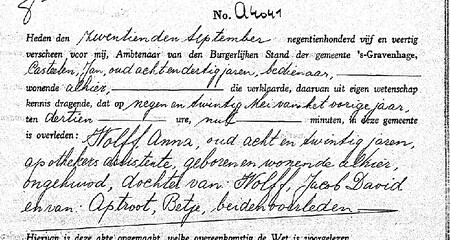 8
No. A4041
Heden den zeventienden September negentienhonderd vijf en veertig
verscheen voor mij, Ambtenaar van den Burgerlijken Stand der gemeente 's-Gravenhage,
Casteelen, Jan, oud acht en dertig jaren, bedienaar,
wonende alhier, die verklaarde, daarvan uit eigen wetenschap
kennis dragende, dat op negen en twintig Mei van het vorige jaar,
ten dertien ure, nul minuten, in deze gemeente
is overleden: Wolff, Anna, oud acht en twintig jaren,
apothekers assistente, geboren en wonende alhier,
ongehuwd, dochter van: Wolff, Jacob David
en van: Aptroot, Betje, beiden overleden
Hiervan is deze akte opgemaakt, welke overeenkomstig de Wet is voorgelezen